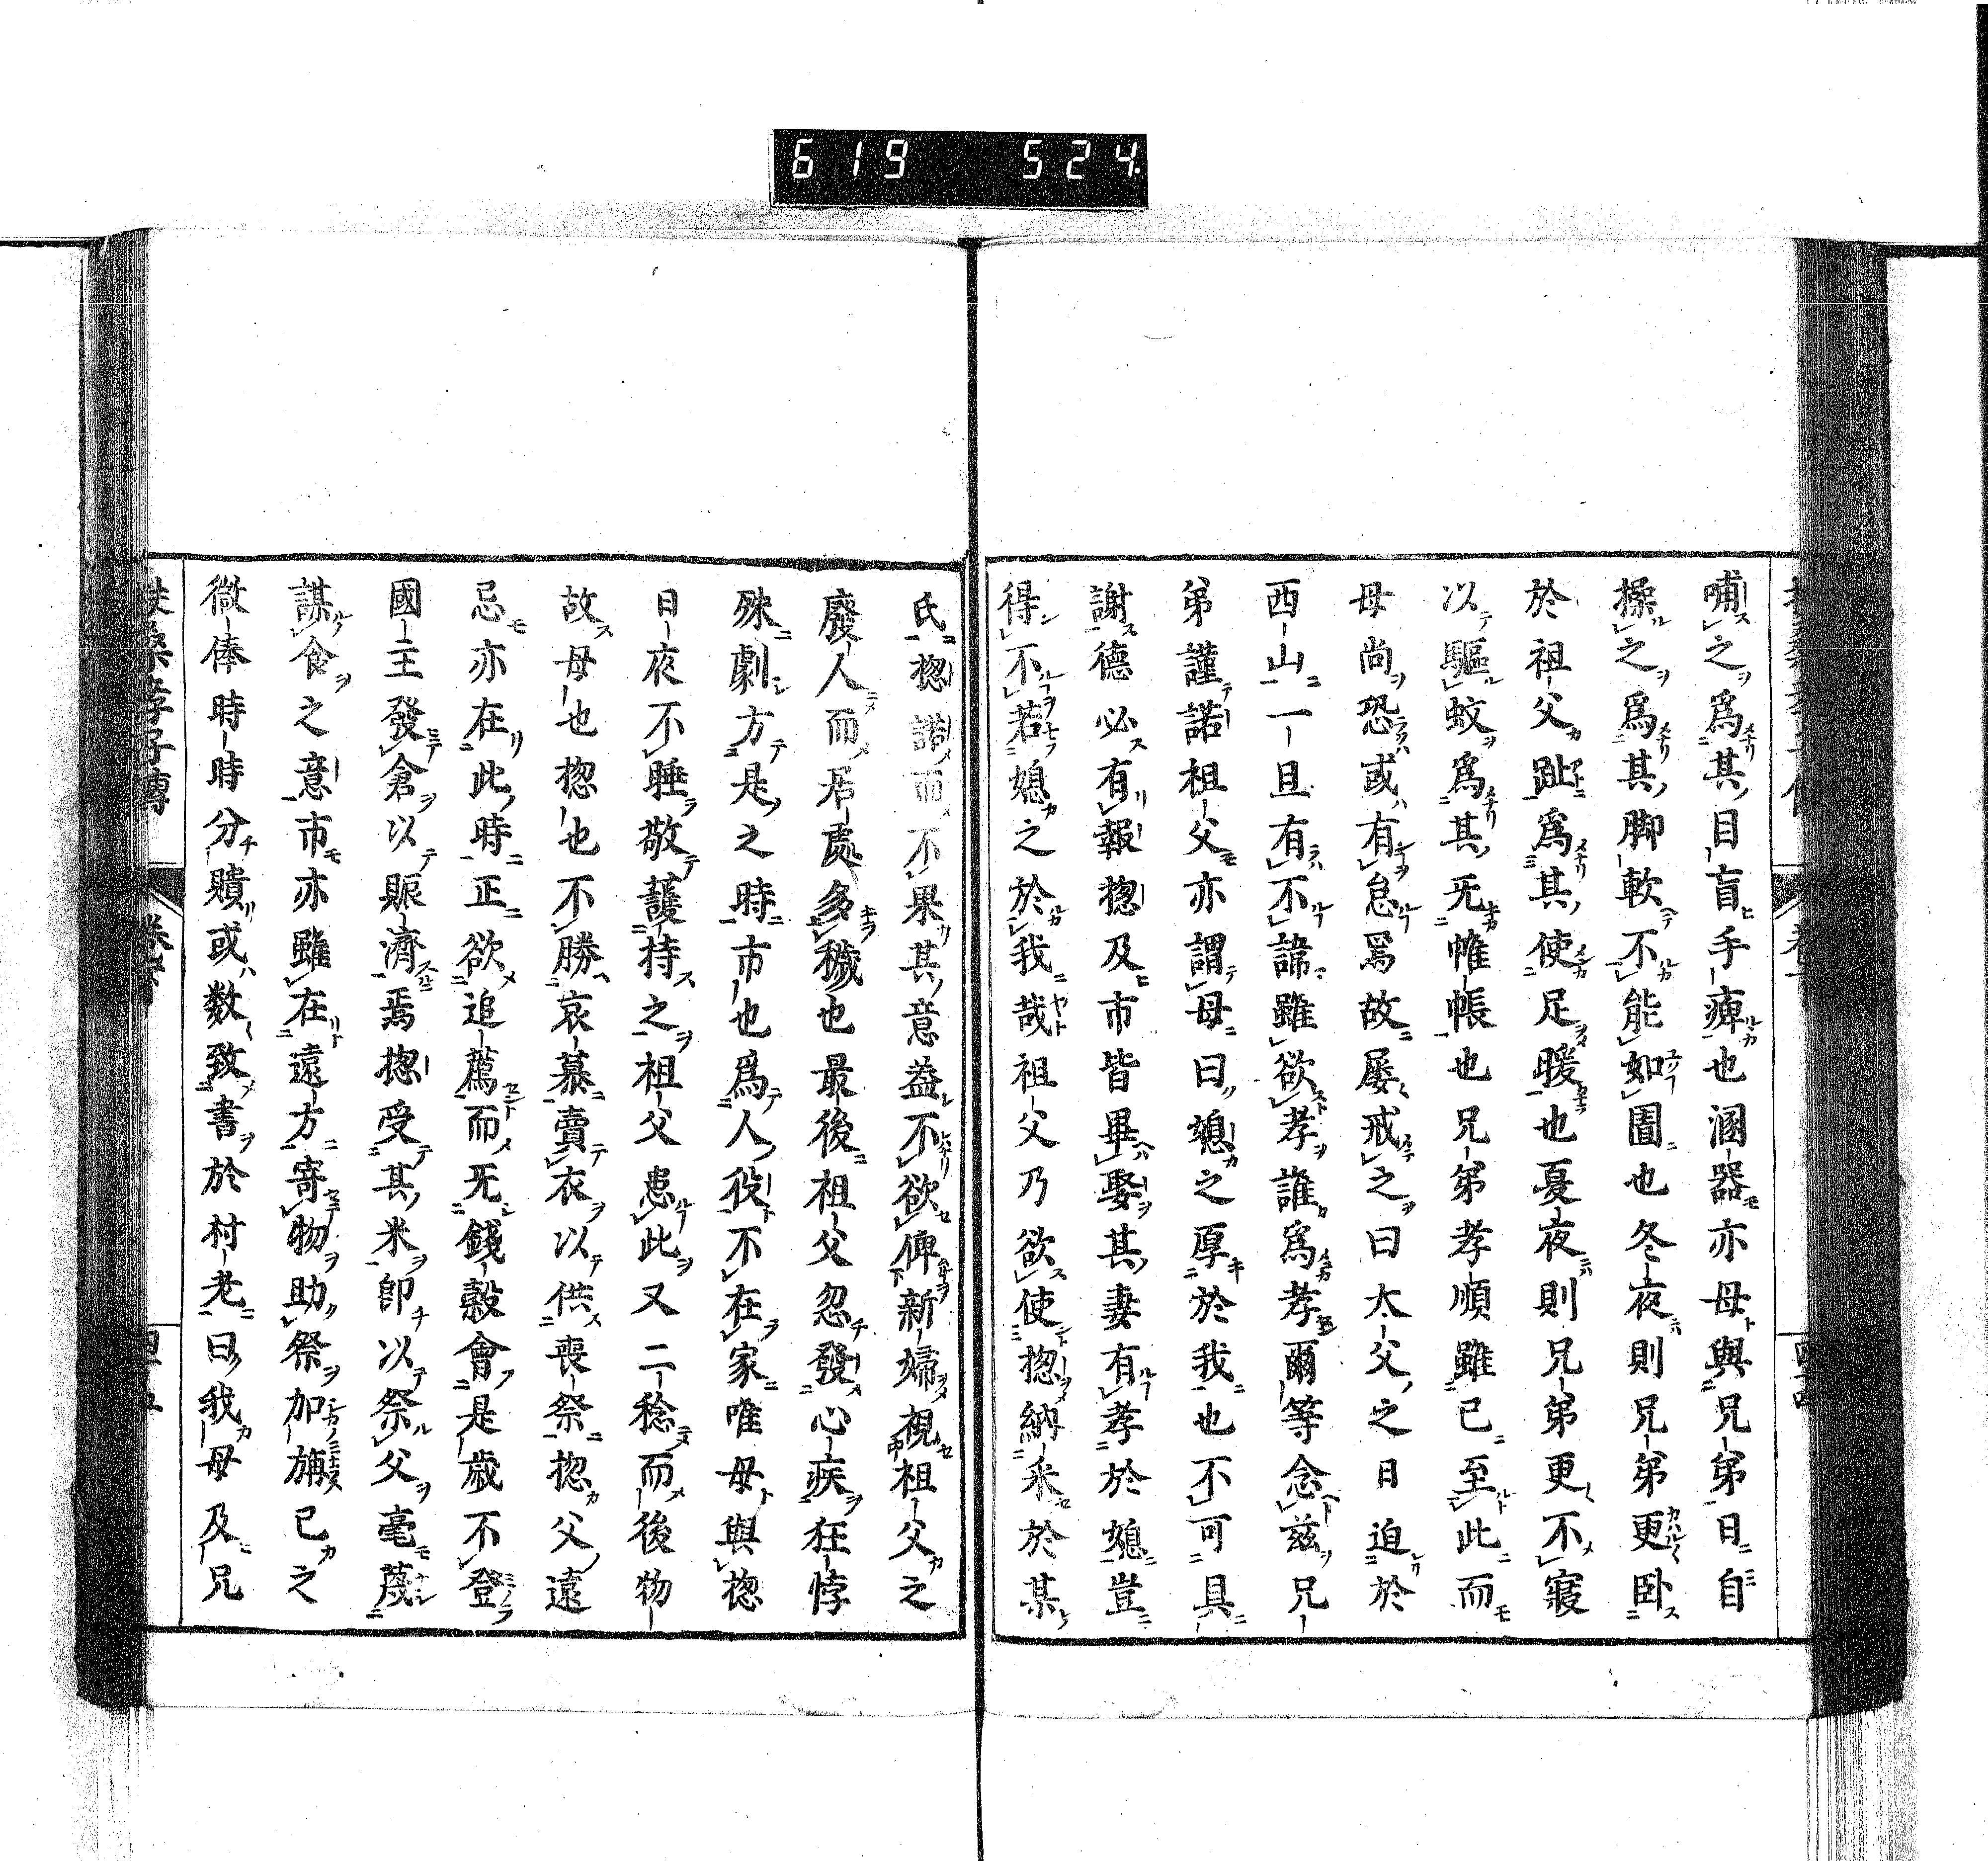 619 524
哺之爲其目盲手痺也溷器亦母與兄弟日自
操之爲其脚軟不能如圊也冬夜則兄弟更臥
於祖父趾爲其使足暖也夏夜則兄弟更不寢
以驅蚊爲其无帷帳也兄弟孝順雖已至此而
母尚恐或有怠焉故屡戒之曰大父之日迫於
西山一旦有不諱雖欲孝誰爲孝爾等念茲兄
弟謹諾祖父亦謂母曰媳之厚於我也不可具
謝德必有報揔及市皆畢娶其妻有孝於媳豈
得不若媳之於我哉祖父乃欲使揔納采於某
氏揔諾而不果其意益不欲俾新婦視祖父之
廢人而居處多穢也最後祖父忽發心疾狂悖
殊劇方是之時市也爲人役不在家唯母與揔
日夜不睡敬護持之祖父患此又二稔而後物
故母也揔也不勝哀慕賣衣以供喪祭揔父遠
忌亦在此時正欲追薦而无錢穀會是歲不登
國主發倉以賑濟焉揔受其米卽以祭父毫蔑
謀食之意市亦雖在遠方寄物助祭加旃已之
微俸時時分贖或数致書於村老曰我母及兄